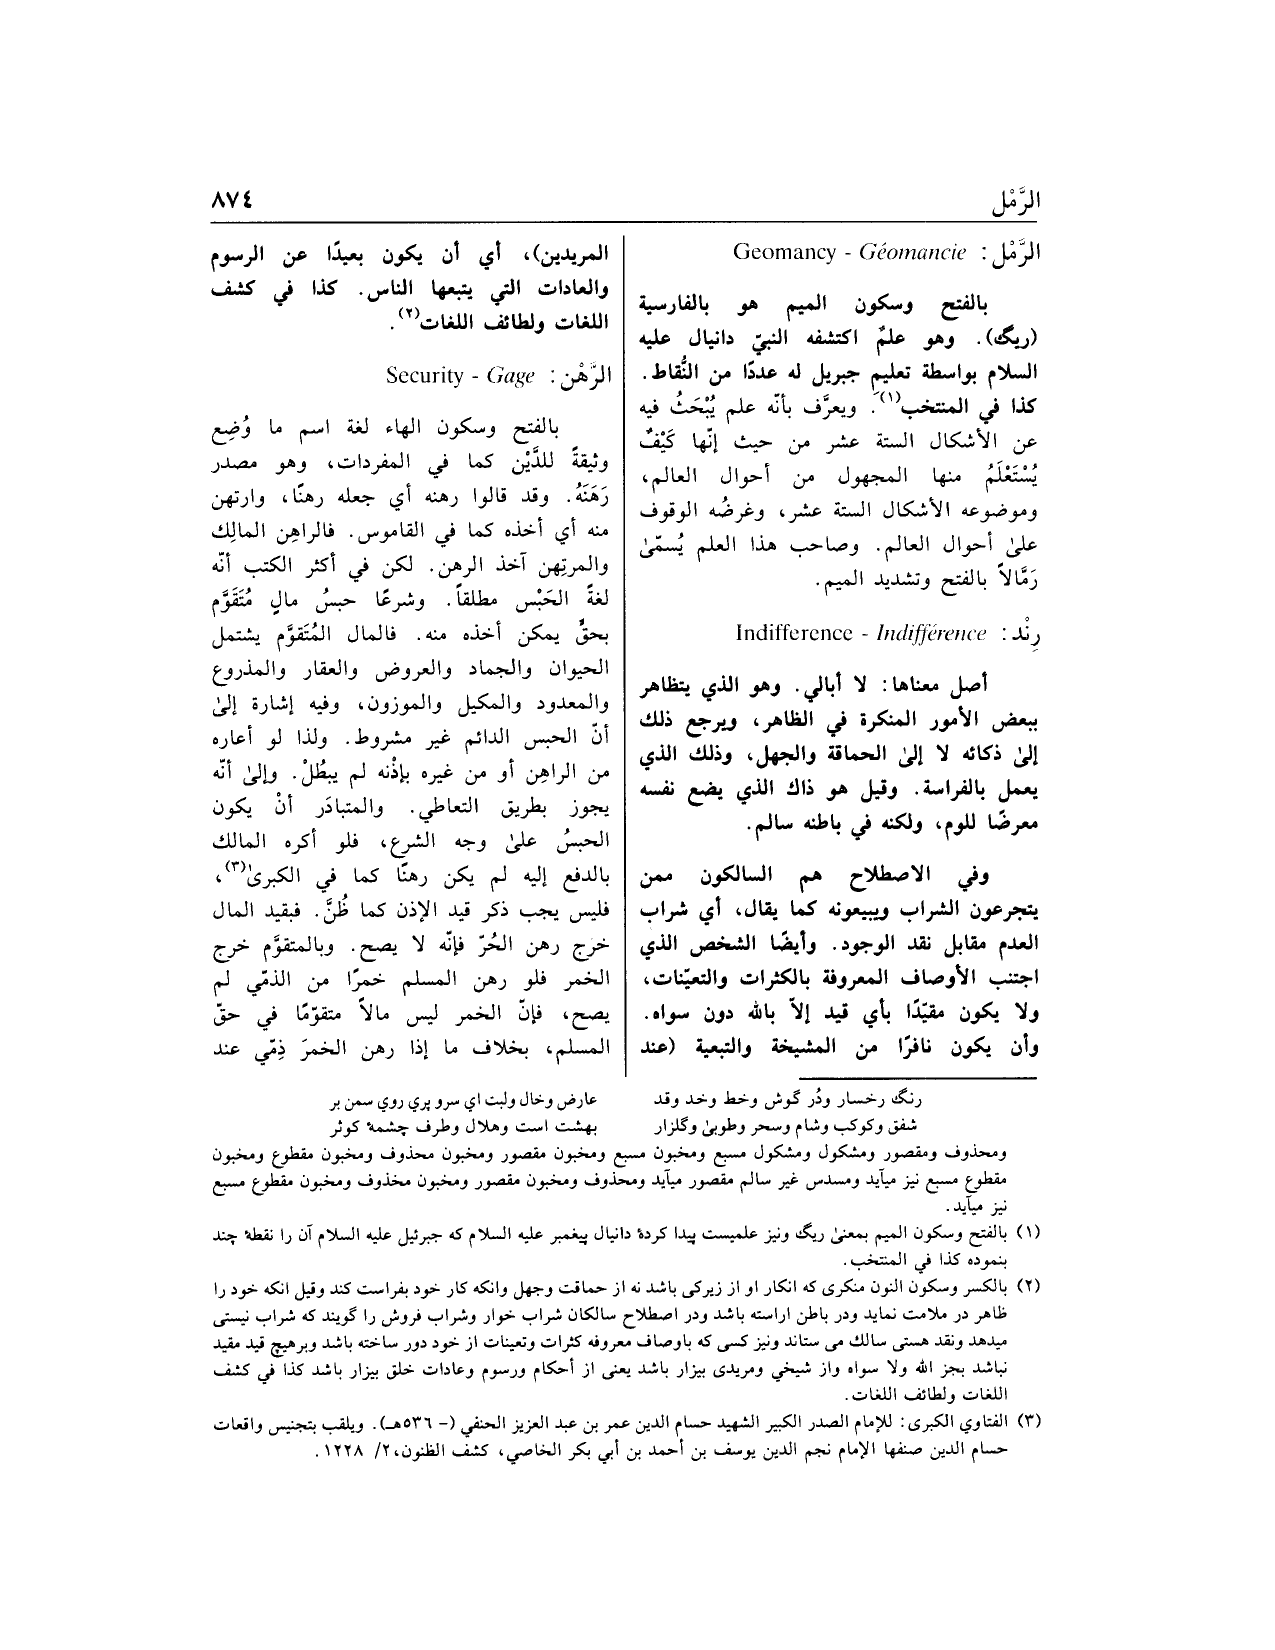 الرَّمْل
٨٧٤
الرَّمْل : Geomancy - Géomancie
بالفتح وسكون الميم هو بالفارسية
(ريگ). وهو علمٌ اكتشفه النبيّ دانيال عليه
السلام بواسطة تعليمِ جبريل له عددًا من النُّقاط.
كذا في المنتخب(١). ويعرَّف بأنّه علم يُبْحَثُ فيه
عن الأشكال الستة عشر من حيث إنّها كَيْفَ
يُسْتَعْلَمُ منها المجهول من أحوال العالم،
وموضوعه الأشكال الستة عشر، وغرضُه الوقوف
علىٰ أحوال العالم. وصاحب هذا العلم يُسمّىٰ
رَمَّالاً بالفتح وتشديد الميم.
رِنْد : Indifference - Indifférence
أصل معناها: لا أبالي. وهو الذي يتظاهر
ببعض الأمور المنكرة في الظاهر، ويرجع ذلك
إلىٰ ذكائه لا إلىٰ الحماقة والجهل، وذلك الذي
يعمل بالفراسة. وقيل هو ذاك الذي يضع نفسه
معرضًا للوم، ولكنه في باطنه سالم.
وفي الاصطلاح هم السالكون ممن
يتجرعون الشراب ويبيعونه كما يقال، أي شراب
العدم مقابل نقد الوجود. وأيضًا الشخص الذي
اجتنب الأوصاف المعروفة بالكثرات والتعيّنات،
ولا يكون مقيّدًا بأي قيد إلاّ بالله دون سواه.
وأن يكون نافرًا من المشيخة والتبعية (عند
المريدين)، أي أن يكون بعيدًا عن الرسوم
والعادات التي يتبعها الناس. كذا في كشف
اللغات ولطائف اللغات(٢).
الرَّهْن : Security - Gage
بالفتح وسكون الهاء لغة اسم ما وُضِع
وثيقةً للدَّيْن كما في المفردات، وهو مصدر
رَهَنَهُ. وقد قالوا رهنه أي جعله رهنًا، وارتهن
منه أي أخذه كما في القاموس. فالراهِن المالِك
والمرتِهن آخذ الرهن. لكن في أكثر الكتب أنّه
لغةً الحَبْس مطلقاً. وشرعًا حبسُ مالٍ مُتَقَوَّم
بحقٍّ يمكن أخذه منه. فالمال المُتَقوَّم يشتمل
الحيوان والجماد والعروض والعقار والمذروع
والمعدود والمكيل والموزون، وفيه إشارة إلىٰ
أنّ الحبس الدائم غير مشروط. ولذا لو أعاره
من الراهِن أو من غيره بإذْنه لم يبطُلْ. وإلىٰ أنّه
يجوز بطريق التعاطي. والمتبادَر أنْ يكون
الحبسُ علىٰ وجه الشرع، فلو أكره المالك
بالدفع إليه لم يكن رهنًا كما في الكبرىٰ(٣)،
فليس يجب ذكر قيد الإذن كما ظُنَّ. فبقيد المال
خرج رهن الحُرّ فإنّه لا يصح. وبالمتقوَّم خرج
الخمر فلو رهن المسلم خمرًا من الذمّي لم
يصح، فإنّ الخمر ليس مالاً متقوّمًا في حقّ
المسلم، بخلاف ما إذا رهن الخمرَ ذِمّي عند
رنگ رخسار ودُر گوش وخط وخد وقد عارض وخال ولبت اي سرو پري روي سمن بر
شفق وكوكب وشام وسحر وطوبىٰ وگلزار بهشت است وهلال وطرف چشمهٔ كوثر
ومحذوف ومقصور ومشكول ومشكول مسبع ومخبون مسبع ومخبون مقصور ومخبون محذوف ومخبون مقطوع ومخبون
مقطوع مسبع نيز ميآيد ومسدس غير سالم مقصور ميآيد ومحذوف ومخبون مقصور ومخبون محذوف ومخبون مقطوع مسبع
نيز ميآيد.
(١) بالفتح وسكون الميم بمعنىٰ ريگ ونيز علميست پيدا كردهٔ دانيال پيغمبر عليه السلام كه جبرئيل عليه السلام آن را نقطهٔ چند
بنموده كذا في المنتخب.
(٢) بالكسر وسكون النون منكري كه انكار او از زيركى باشد نه از حماقت وجهل وانكه كار خود بفراست كند وقيل انكه خود را
ظاهر در ملامت نمايد ودر باطن اراسته باشد ودر اصطلاح سالكان شراب خوار وشراب فروش را گويند كه شراب نيستى
ميدهد ونقد هستى سالك مى ستاند ونيز كسى كه باوصاف معروفه كثرات وتعينات از خود دور ساخته باشد وبرهيچ قيد مقيد
نباشد بجز الله ولا سواه واز شيخي ومريدى بيزار باشد يعنى از أحكام ورسوم وعادات خلق بيزار باشد كذا في كشف
اللغات ولطائف اللغات.
(٣) الفتاوي الكبرى: للإمام الصدر الكبير الشهيد حسام الدين عمر بن عبد العزيز الحنفي (- ٥٣٦هـ). ويلقب بتجنيس واقعات
حسام الدين صنفها الإمام نجم الدين يوسف بن أحمد بن أبي بكر الخاصي، كشف الظنون،٢/ ١٢٢٨.